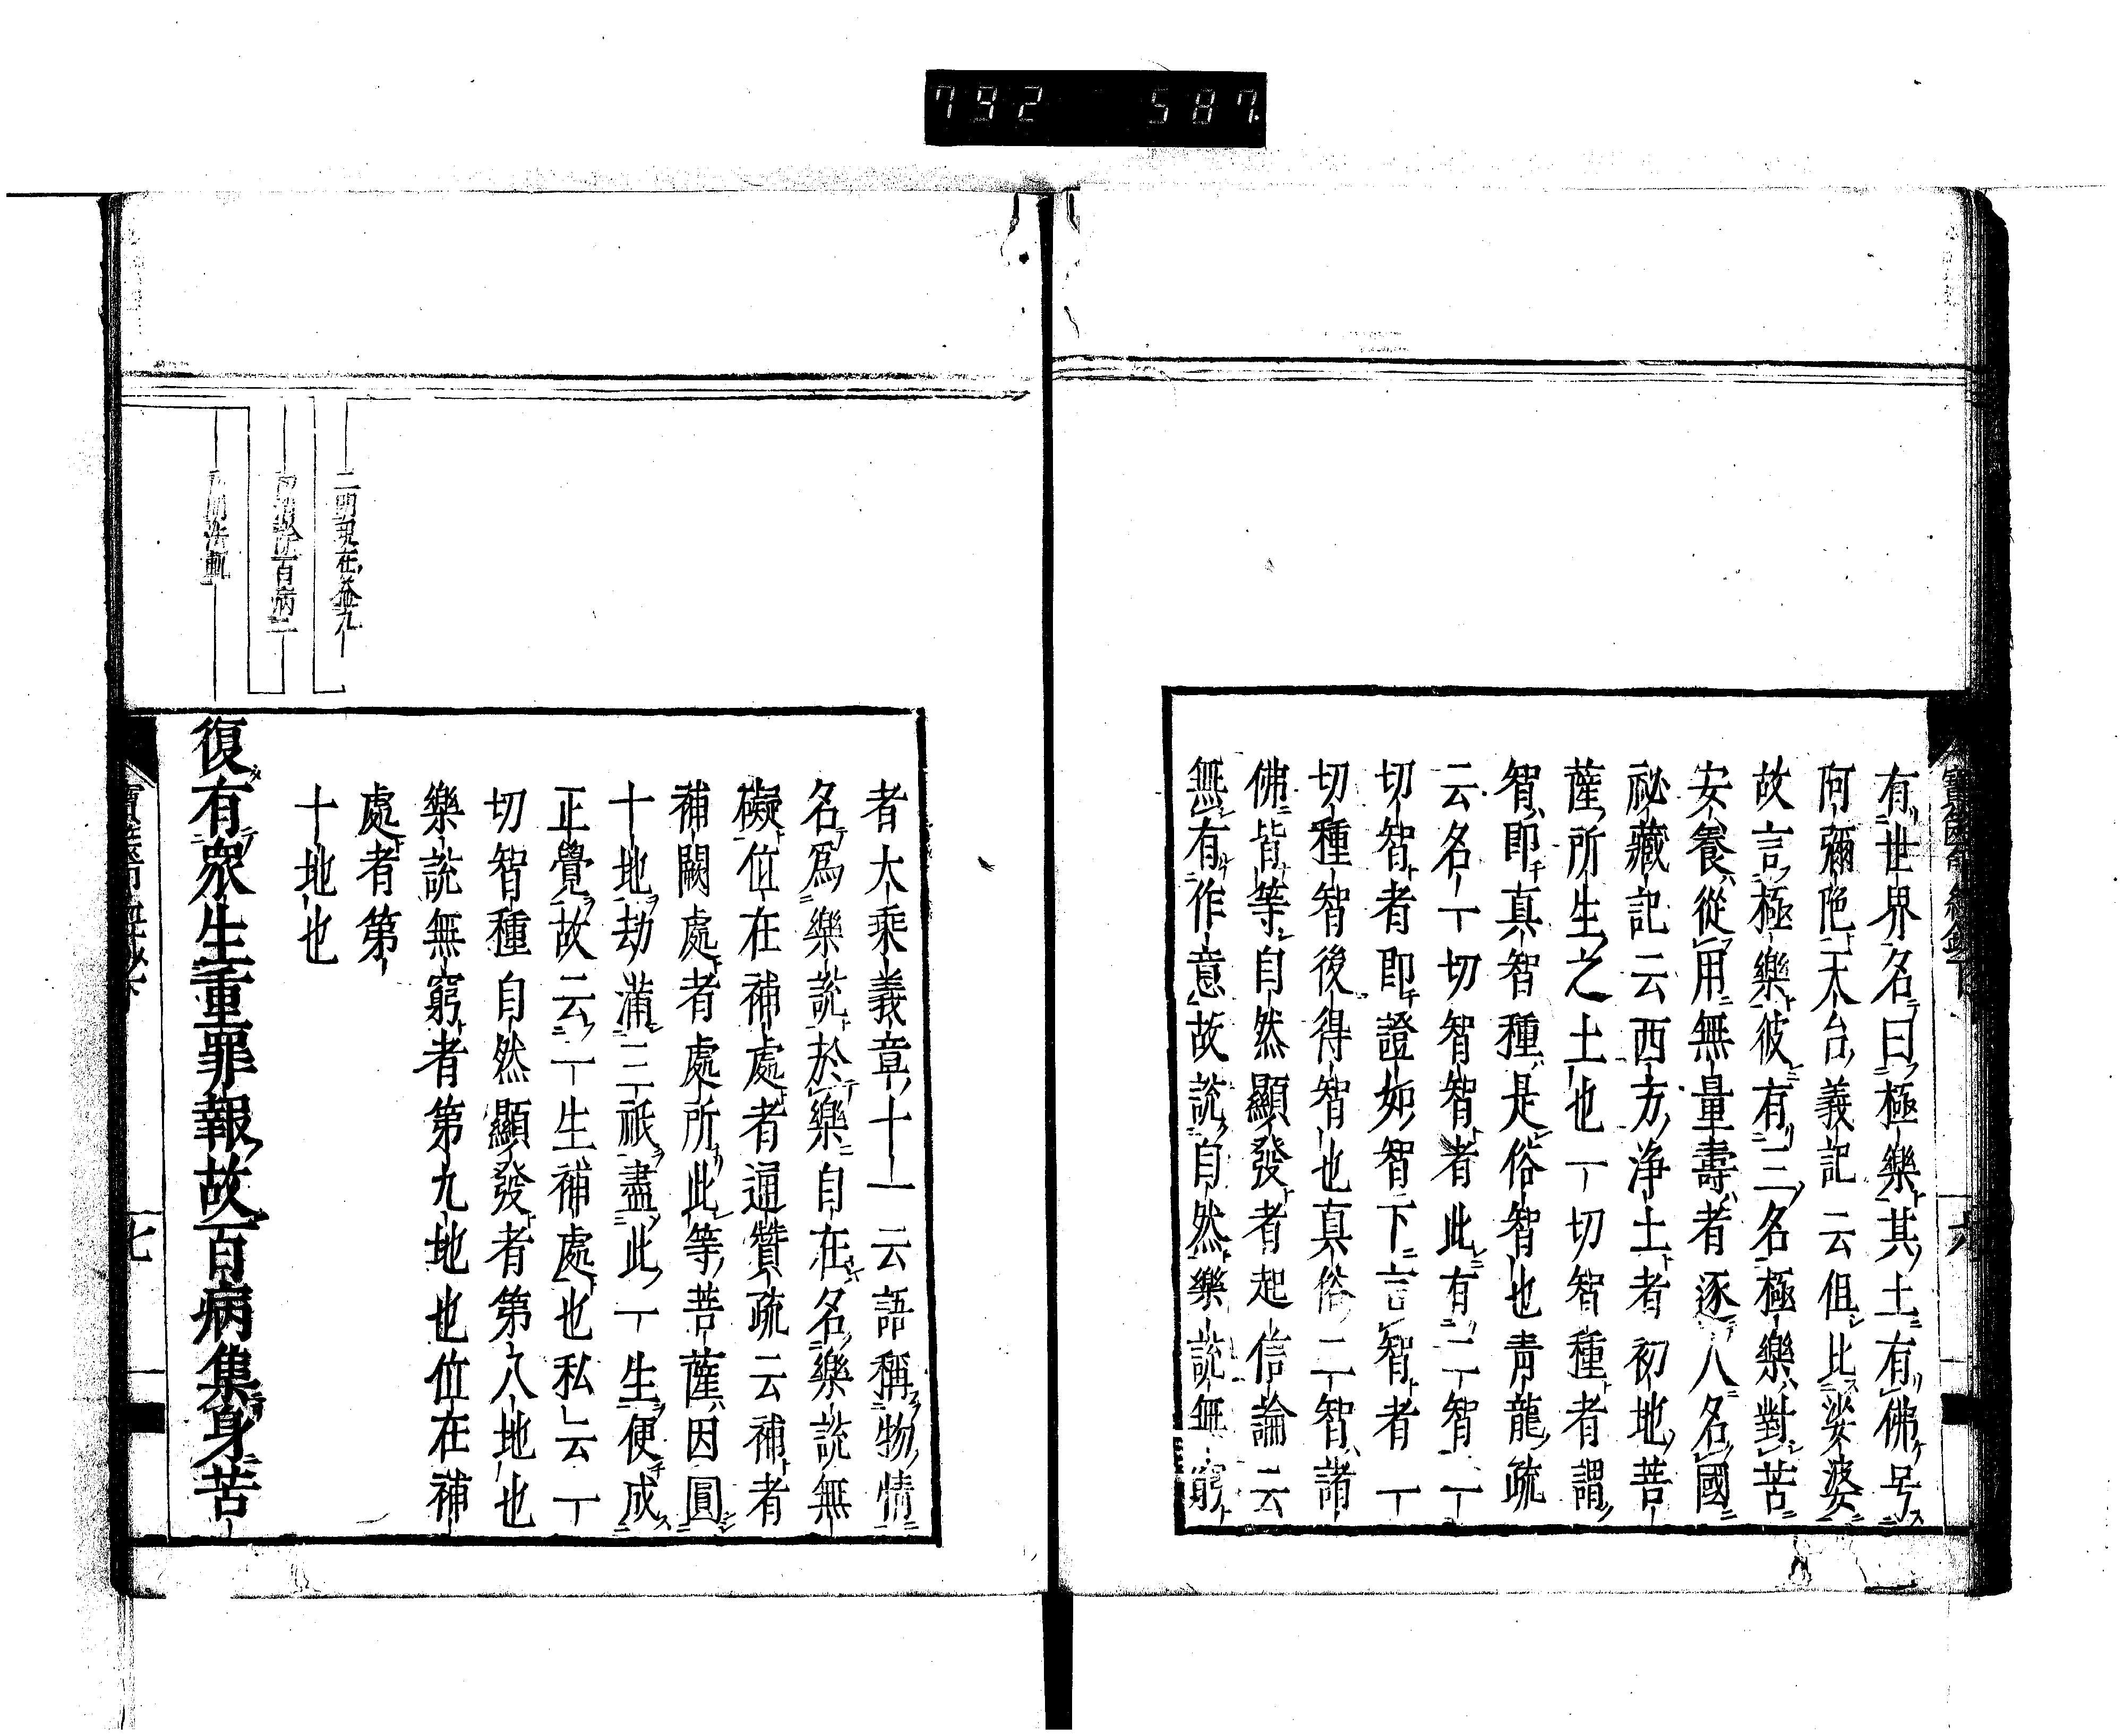 792 587
有世界名曰極樂其土有佛号
阿彌陁天台義記云但比娑婆
故言極樂彼有三名極樂對苦
安養從用無量壽者逐人名國
祕藏記云西方淨土者初地菩
薩所生之土也一切智種者謂
智即真智種是俗智也青龍疏
云名一切智智者此有二智一一
切智者即證如智下言智者一
切種智後得智也真俗二智諸
佛皆等自然顯發者起信論云
無有作意故説自然樂説無窮
者大乘義章十一云語稱物情
名爲樂説於樂自在名樂説無
礙位在補處者通贊疏云補者
補闕處者處所此等菩薩因圓
十地劫滿三祇盡此一生便成
正覺故云一生補處也私云一
切智種自然顯發者第八地也
樂説無窮者第九地也位在補
處者第
十地也
二明現在益九
百病二
復有衆生重罪報故百病集身苦
七